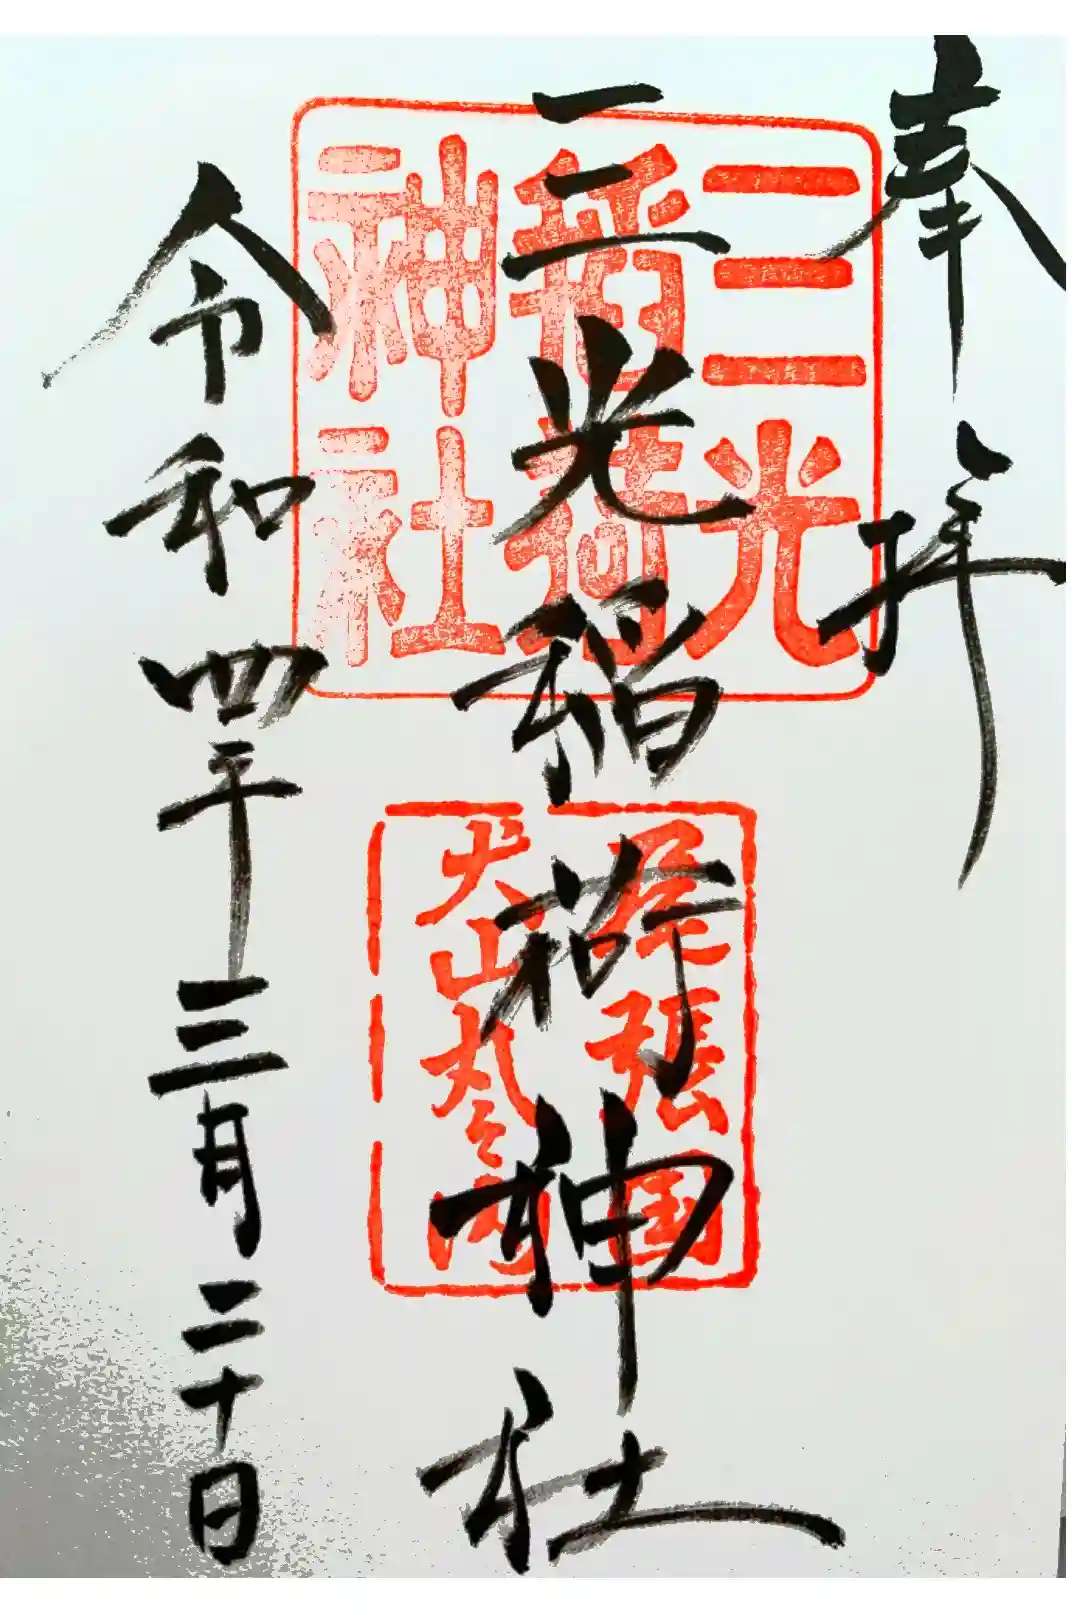 奉拝
三光稲荷神社
令和四年三月二十日
三光
稲荷
神社
尾張国
犬山丸之内